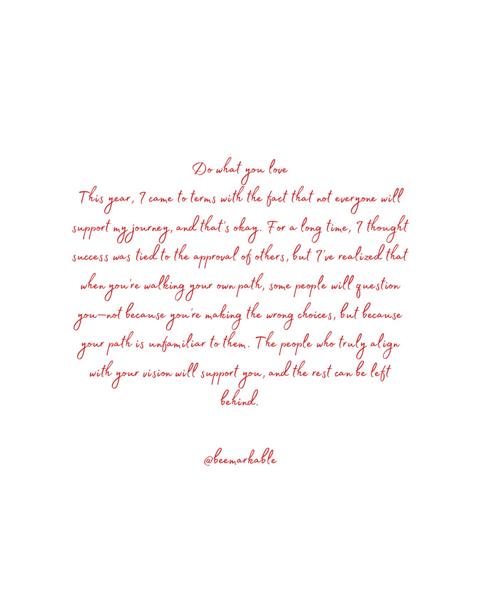 Do what you love
This year, I came to terms with the fact that not everyone will
support my journey, and that's okay. For a long time, I thought
success was tied to the approval of others, but I've realized that
when you're walking your own path, some people will question
you—not because you're making the wrong choices, but because
your path is unfamiliar to them. The people who truly align
with your vision will support you, and the rest can be left
behind.
@beemarkable